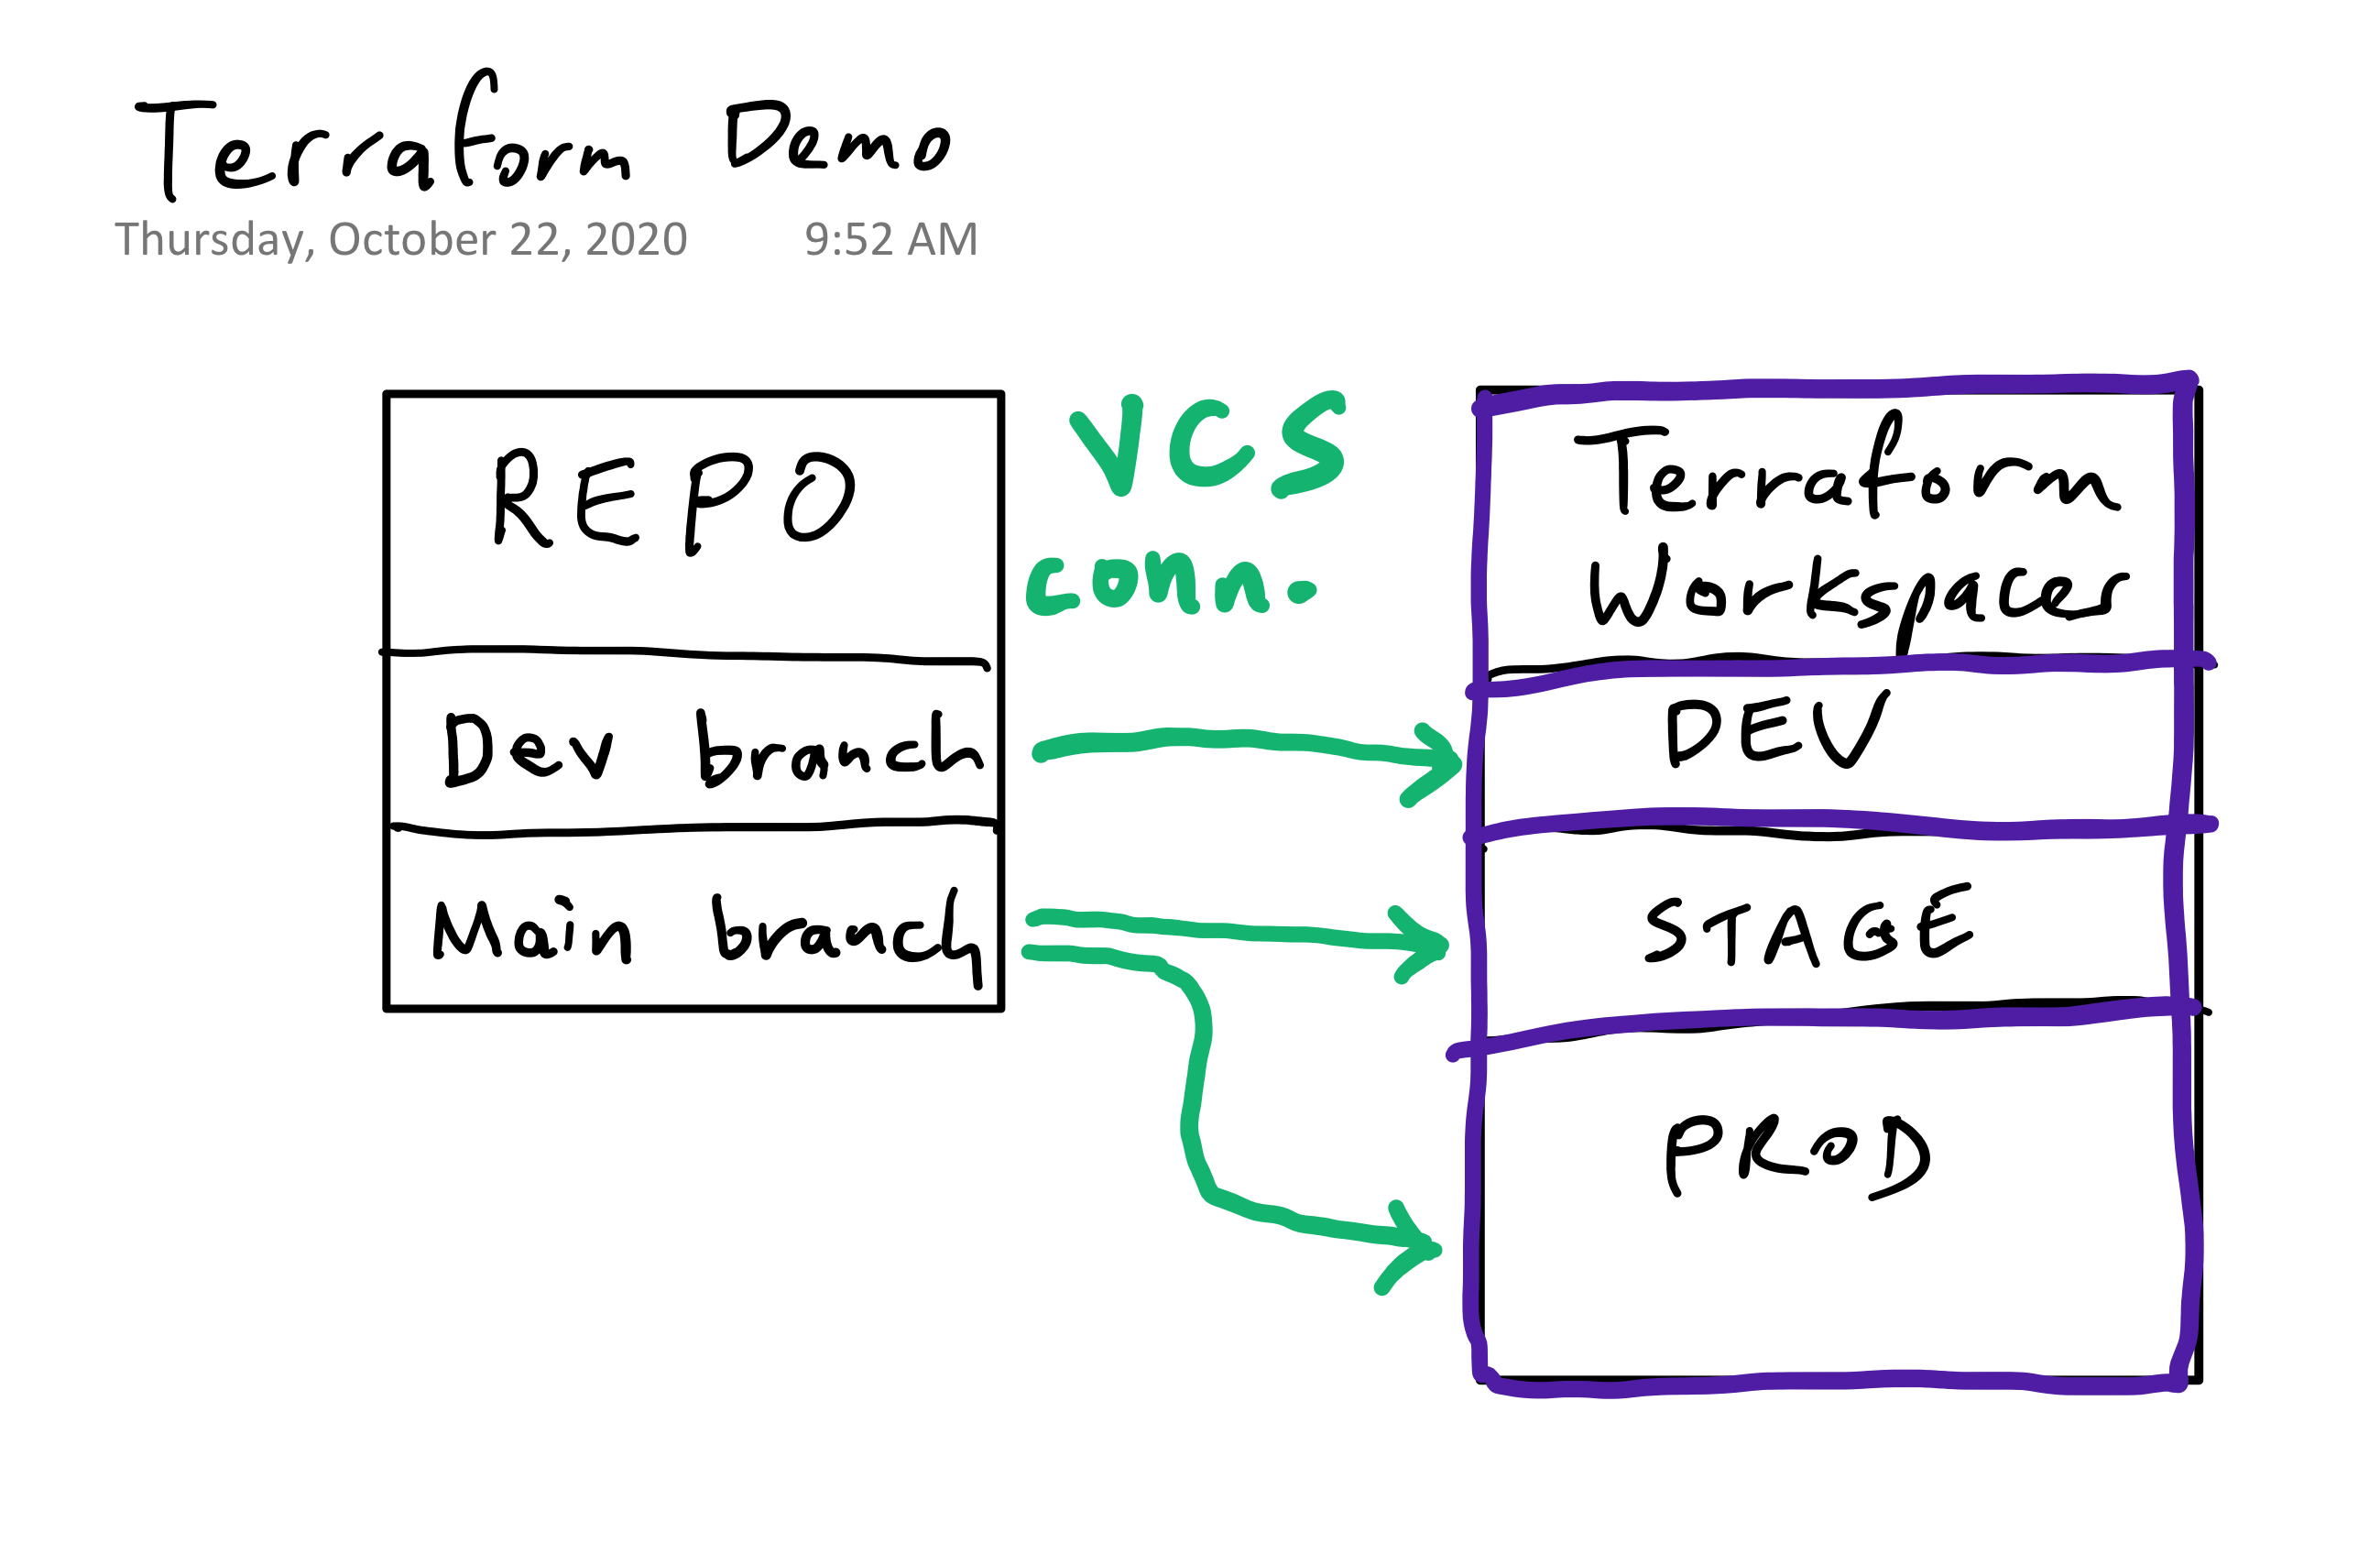 Terraform Demo
Thursday, October 22, 2020 9:52 AM
REPO
Dev branch
Main branch
VCS
conn.
Terraform
Workspaces
DEV
STAGE
PROD